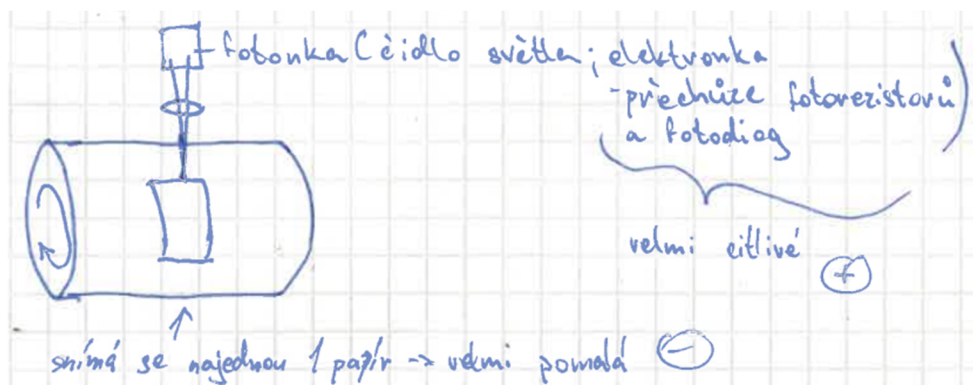 fotonka (čidlo světla; elektronka
- přechůze fotorezistorů
a fotodiog
velmi citlivé +
snímá se najednou 1 papír -> velmi pomalá -